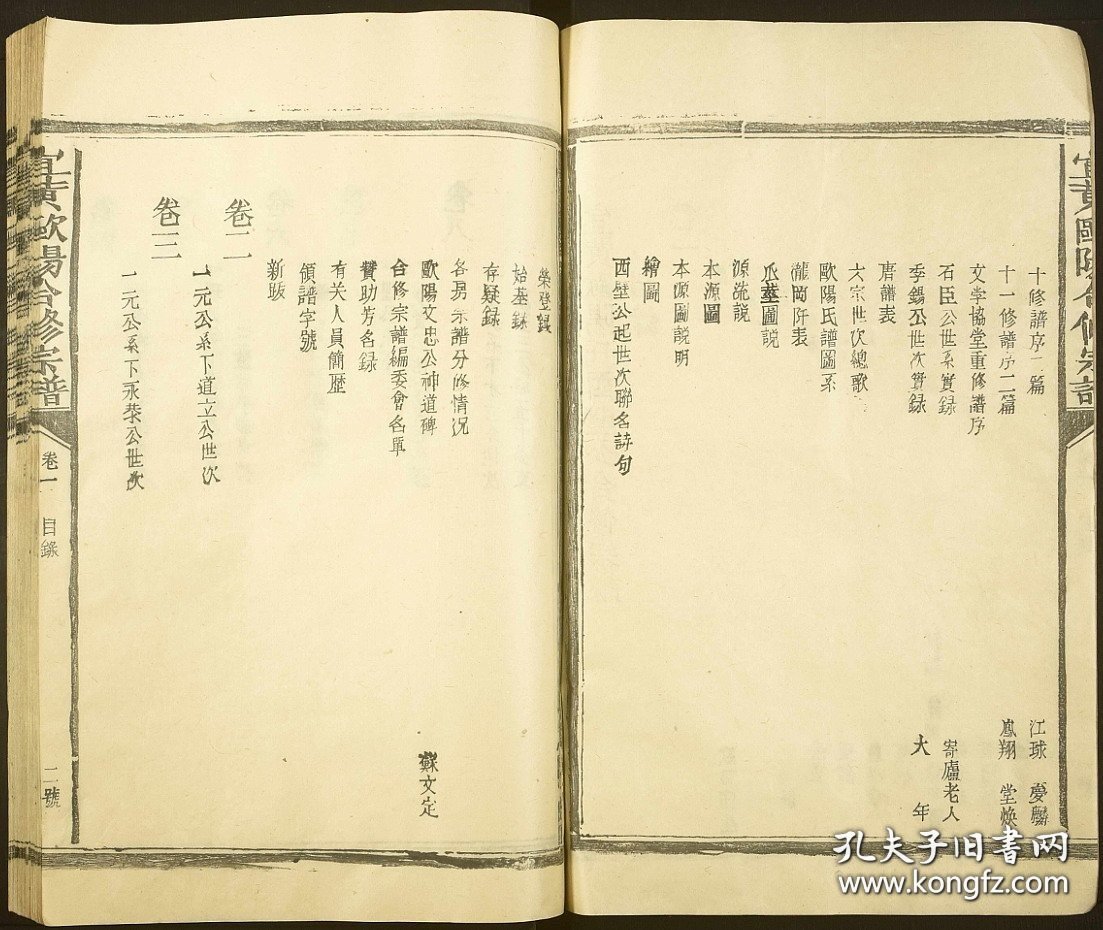 宜黃歐陽合修宗譜
十修譜序二篇 江球 夢麟
十一修譜序二篇 鳳翔 堂煥
文学協堂重修譜序
石臣公世系實録 寄廬老人
季錫公世次實録 大年
唐譜表
六宗世次總歌
歐陽氏譜圖系
瀧岡阡表
瓜藤圖説
源流説
本源圖
本源圖説明
繪圖
西壁公起世次聯名詩句
榮登録
始基録
存疑録
各房宗譜分修情况
歐陽文忠公神道碑 蘇文定
合修宗譜編委會名單
贊助芳名録
有关人員簡歷
領譜字號
新跋
卷二
一元公系下道立公世次
卷三
一元公系下永泰公世次
宜黃歐陽合修宗譜
卷一 目録
二號
孔夫子旧書网
www.kongfz.com